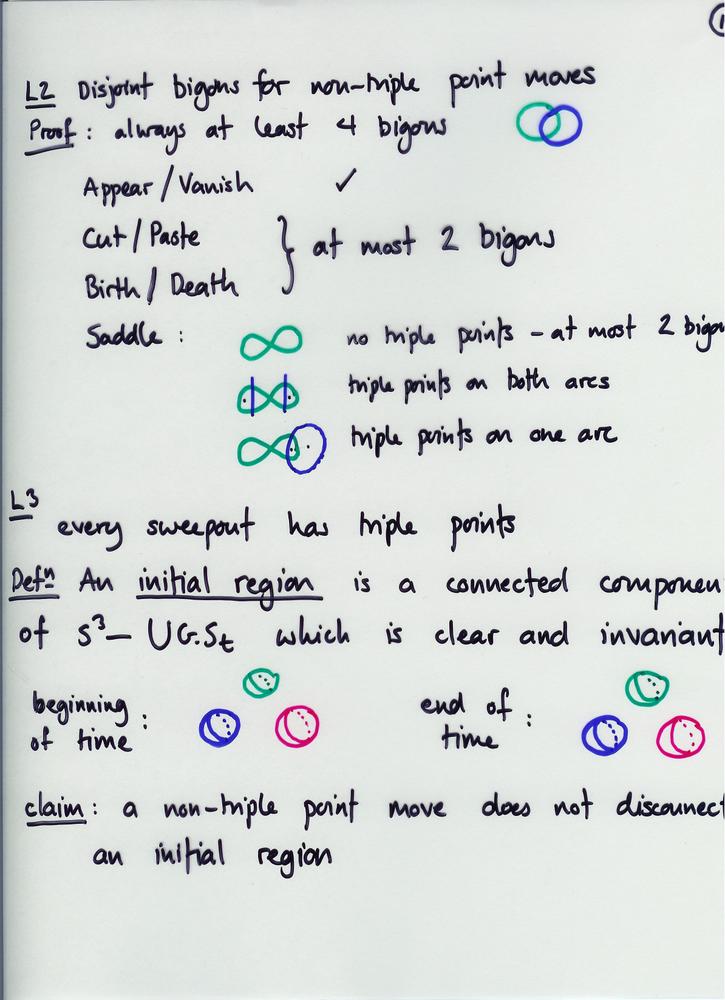 L2 Disjoint bigons for non-triple point moves
Proof: always at least 4 bigons
Appear/Vanish ✓
Cut/Paste
Birth/Death } at most 2 bigons
Saddle: no triple points - at most 2
triple points on both arcs
triple points on one arc
L3
every sweepout has triple points
Defⁿ An initial region is a connected
of S³- UG.St which is clear and invariant
beginning of time: end of time:
claim: a non-triple point move does not
an initial region